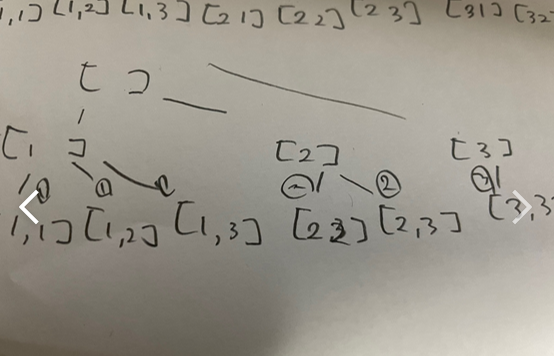 1,1] [1,2] [1,3] [2 1] [2 2] [2 3] [3 1] [3 2
[ ]
[1 ] [2] [3]
② ②
1,1] [1,2] [1,3] [2 2] [2,3] [3,3